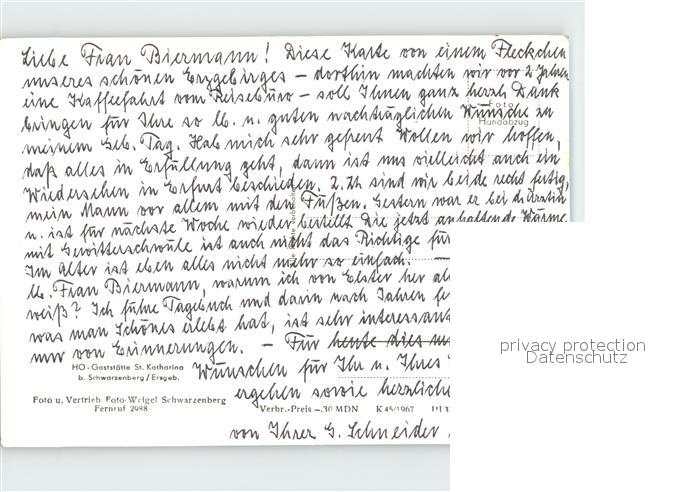 Liebe Frau Biermann! Diese Karte von einem Fleckchen
unseres schönen Erzgebirges – dorthin machten wir vor 2 Jahren
eine Kaffeefahrt vom Reisebüro – soll Ihnen ganz herzl. Dank
bringen für Ihre so lb. u. guten nachträglichen Wünsche zu
Foto
Handabzug
meinem Geb. Tag. Hab mich sehr gefreut. Wollen wir hoffen,
daß alles in Erfüllung geht, dann ist uns vielleicht auch ein
Wiedersehen in Erfurt beschieden. Z. Zt. sind wir beide recht fertig,
mein Mann vor allem mit den Füßen. Gestern war er bei d. Ärztin
u. ist für nächste Woche wieder bestellt. Die jetzt anhaltende Wärme
mit Gewitterschwüle ist auch nicht das Richtige für
Im Alter ist eben alles nicht mehr so einfach. –
lb. Frau Biermann, warum ich von Elster her
weiß? Ich führe Tagebuch und dann nach Jahren
was man Schönes erlebt hat, ist sehr interessant
nur von Erinnerungen. – Für heute dies
privacy protection
Datenschutz
HO-Gaststätte St. Katharina
b. Schwarzenberg/Erzgeb.
Wünschen für Ihr u. Ihres
ergehen sowie herzliche
Foto u. Vertrieb Foto-Weigel Schwarzenberg
Fernruf 2988
Verbr.-Preis –.30 MDN K 45/1967
von Ihrer G. Schneider